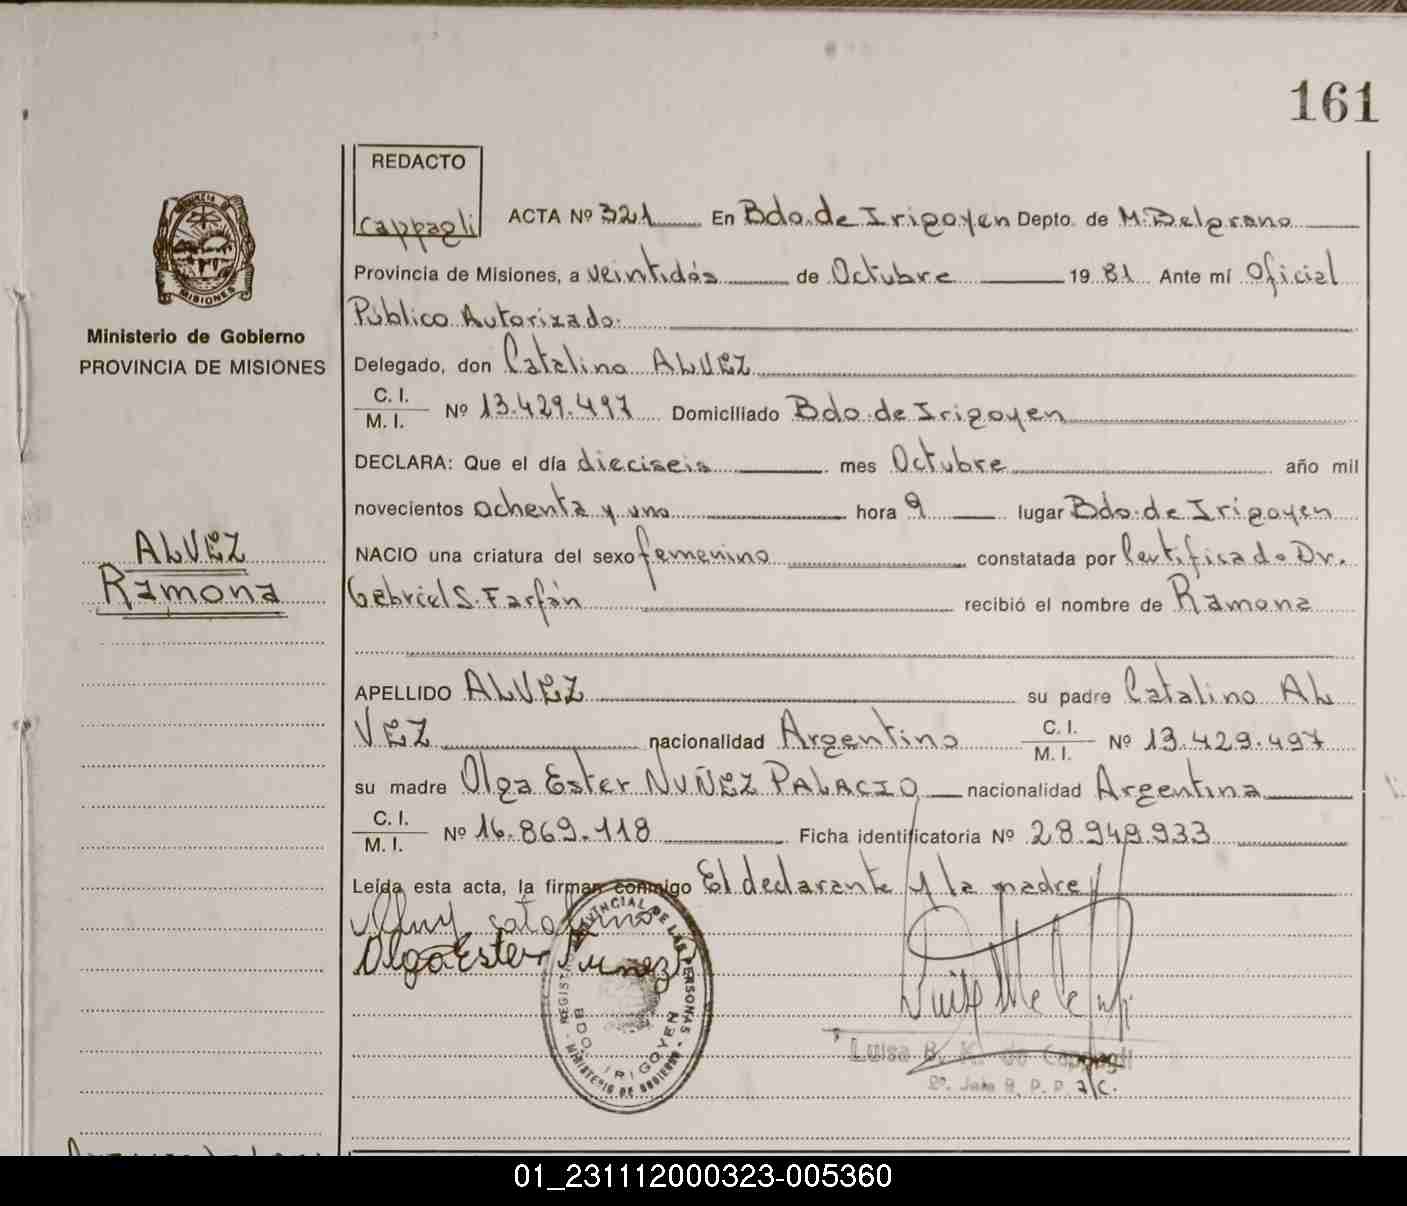 161
REDACTO
Cappagli
ACTA Nº 321 En Bdo. de Irigoyen Depto. de M. Belgrano
Provincia de Misiones, a veintidós de Octubre 19 81 Ante mí Oficial
Público Autorizado.
Delegado, don Catalino ALVEZ
C. I.
M. I.
Nº 13.429.497 Domiciliado Bdo. de Irigoyen
DECLARA: Que el día dieciseis mes Octubre año mil
novecientos ochenta y uno hora 9 lugar Bdo. de Irigoyen
NACIO una criatura del sexo femenino constatada por Certificado Dr.
Gabriel S. Farfán recibió el nombre de Ramona
APELLIDO ALVEZ su padre Catalino AL
VEZ nacionalidad Argentino C. I.
M. I.
Nº 13.429.497
su madre Olga Ester NUÑEZ PALACIO nacionalidad Argentina
C. I.
M. I.
Nº 16.869.118 Ficha identificatoria Nº 28.949.933
Leída esta acta, la firman conmigo El declarante y la madre
catalino
Olga Ester Nuñez
REGISTRO PROVINCIAL DE LAS PERSONAS - MINISTERIO DE GOBIERNO -
BDO. IRIGOYEN
Luisa B. K. de Cappagli
a/c.
PROVINCIA DE
MISIONES
Ministerio de Gobierno
PROVINCIA DE MISIONES
ALVEZ
Ramona
01_231112000323-005360